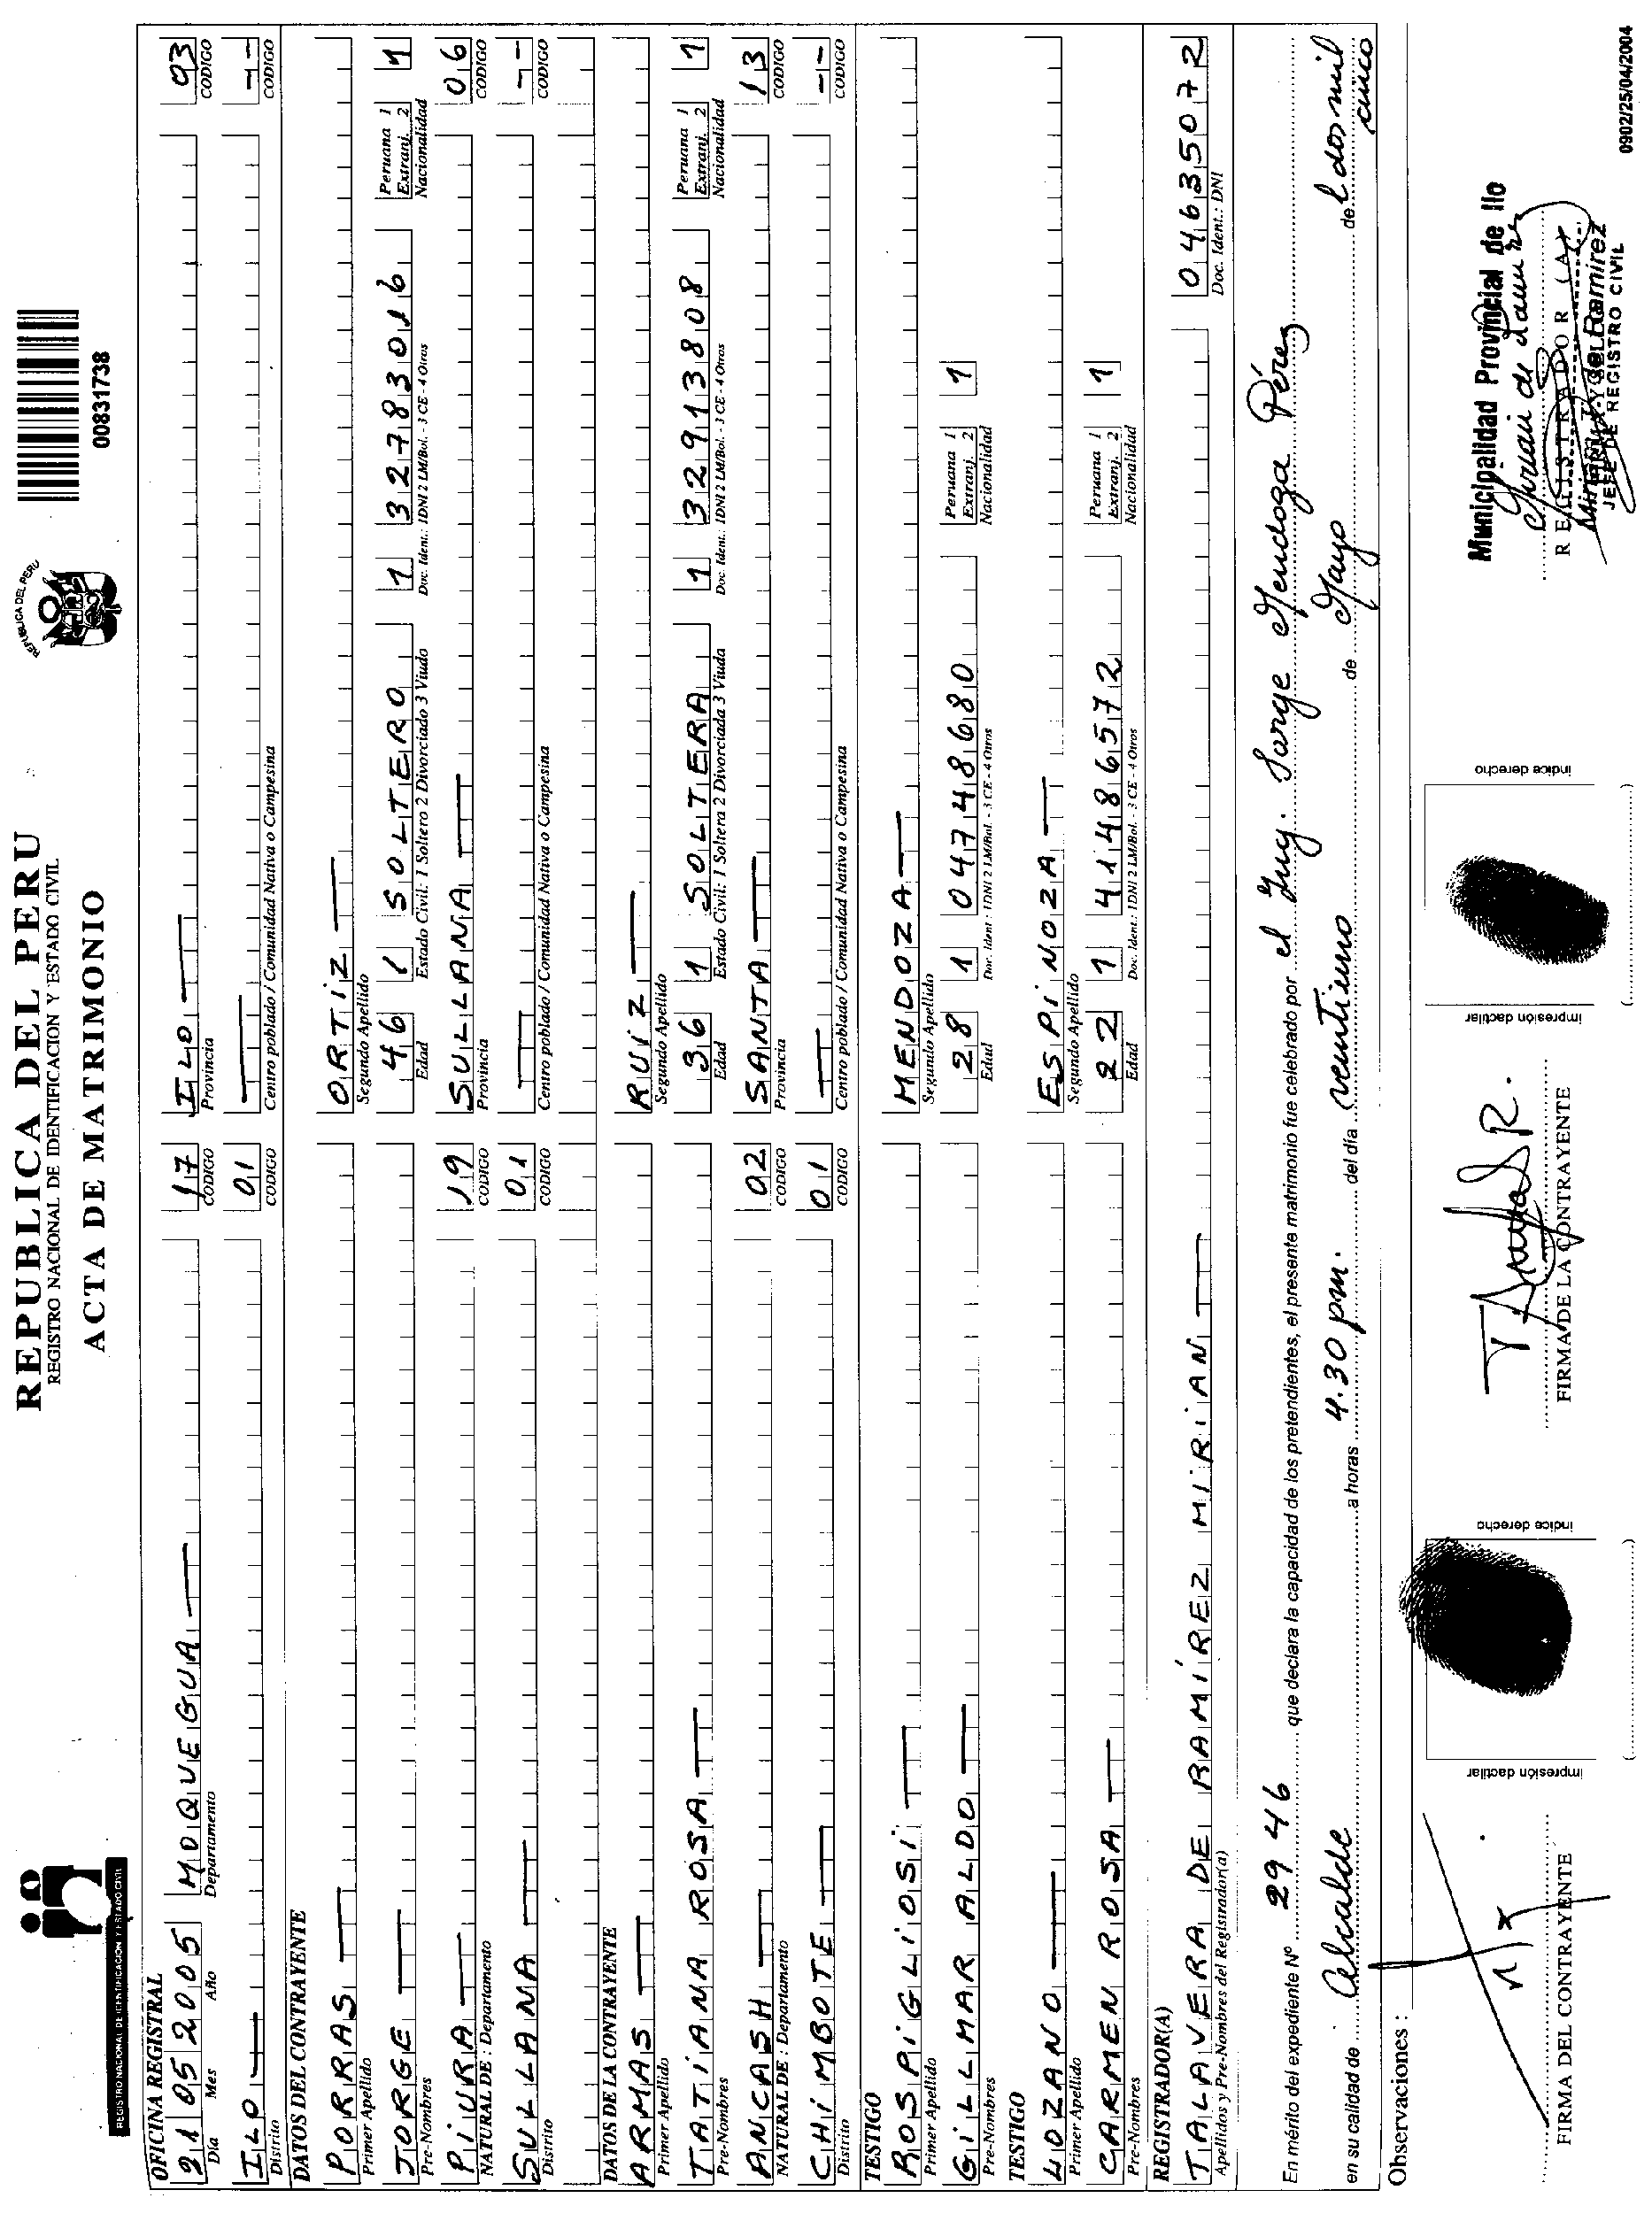 REPUBLICA DEL PERU
REGISTRO NACIONAL DE IDENTIFICACION Y ESTADO CIVIL
ACTA DE MATRIMONIO
REGISTRO NACIONAL DE IDENTIFICACION Y ESTADO CIVIL
REPUBLICA DEL PERU
00831738
OFICINA REGISTRAL
21 05 2005 MOQUEGUA 17 ILO 03
Día Mes Año Departamento CODIGO Provincia CODIGO
ILO 01 --
Distrito CODIGO Centro poblado / Comunidad Nativa o Campesina CODIGO
DATOS DEL CONTRAYENTE
PORRAS ORTIZ
Primer Apellido Segundo Apellido
JORGE 46 1 SOLTERO 1 32783016 Peruana 1 Extranj. 2 1
Pre-Nombres Edad Estado Civil: 1 Soltero 2 Divorciado 3 Viudo Doc. Ident.: 1DNI 2 LM/Bol. - 3 CE - 4 Otros Nacionalidad
PIURA 19 SULLANA 06
NATURAL DE : Departamento CODIGO Provincia CODIGO
SULLANA 01 --
Distrito CODIGO Centro poblado / Comunidad Nativa o Campesina CODIGO
DATOS DE LA CONTRAYENTE
ARMAS RUIZ
Primer Apellido Segundo Apellido
TATIANA ROSA 36 1 SOLTERA 1 32913808 Peruana 1 Extranj. 2 1
Pre-Nombres Edad Estado Civil: 1 Soltera 2 Divorciada 3 Viuda Doc. Ident.: 1DNI 2 LM/Bol. - 3 CE - 4 Otros Nacionalidad
ANCASH 02 SANTA 13
NATURAL DE : Departamento CODIGO Provincia CODIGO
CHIMBOTE 01 --
Distrito CODIGO Centro poblado / Comunidad Nativa o Campesina CODIGO
TESTIGO
ROSPIGLIOSI MENDOZA
Primer Apellido Segundo Apellido
GILLMAR ALDO 28 1 04748680 Peruana 1 Extranj. 2 1
Pre-Nombres Edad Doc. Ident.: 1DNI 2 LM/Bol. - 3 CE - 4 Otros Nacionalidad
TESTIGO
LOZANO ESPINOZA
Primer Apellido Segundo Apellido
CARMEN ROSA 22 1 41486572 Peruana 1 Extranj. 2 1
Pre-Nombres Edad Doc. Ident.: 1DNI 2 LM/Bol. - 3 CE - 4 Otros Nacionalidad
REGISTRADOR(A)
TALAVERA DE RAMÍREZ MIRIAN 04635072
Apellidos y Pre-Nombres del Registrador(a) Doc. Ident.: DNI
En mérito del expediente Nº 2946 que declara la capacidad de los pretendientes, el presente matrimonio fue celebrado por el Ing. Jorge Mendoza Pérez
en su calidad de Alcalde a horas 4.30 pm. del día veintiuno de Mayo de l dos mil cinco
Observaciones :
impresión dactilar índice derecho impresión dactilar índice derecho
Municipalidad Provincial de Ilo
REGISTRADOR (A)
JEFE DE REGISTRO CIVIL
FIRMA DEL CONTRAYENTE FIRMA DE LA CONTRAYENTE
0902/25/04/2004